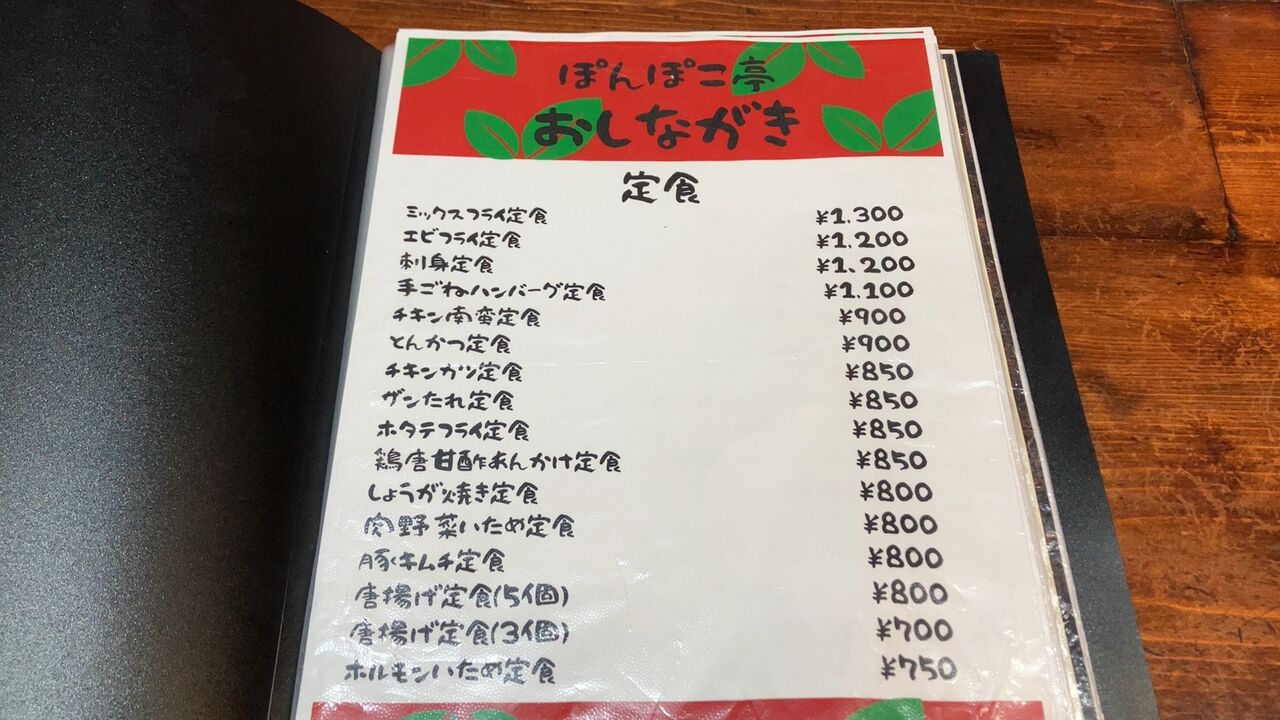 ぽんぽこ亭
おしながき
定食
ミックスフライ定食 ¥1,300
エビフライ定食 ¥1,200
刺身定食 ¥1,200
手ごねハンバーグ定食 ¥1,100
チキン南蛮定食 ¥900
とんかつ定食 ¥900
チキンカツ定食 ¥850
ザンたれ定食 ¥850
ホタテフライ定食 ¥850
鶏唐甘酢あんかけ定食 ¥850
しょうが焼き定食 ¥800
肉野菜いため定食 ¥800
豚キムチ定食 ¥800
唐揚げ定食(5個) ¥800
唐揚げ定食(3個) ¥700
ホルモンいため定食 ¥750